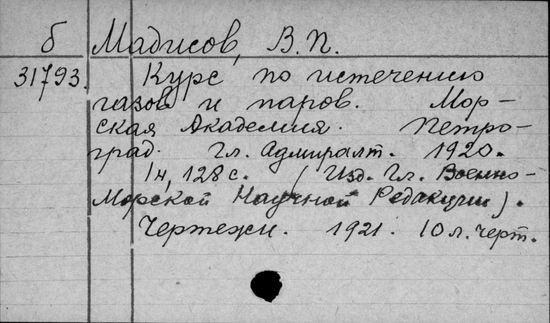 б Мадисов, В.П.
31793. Курс по истечению
газов и паров. Мор-
ская Академия. Петро-
град. Гл. Адмиралт. 1920.
1н, 128 с. (Изд. Гл. Военно-
Морской Научной Редакции).
Чертежи. 1921. 10 л. черт.